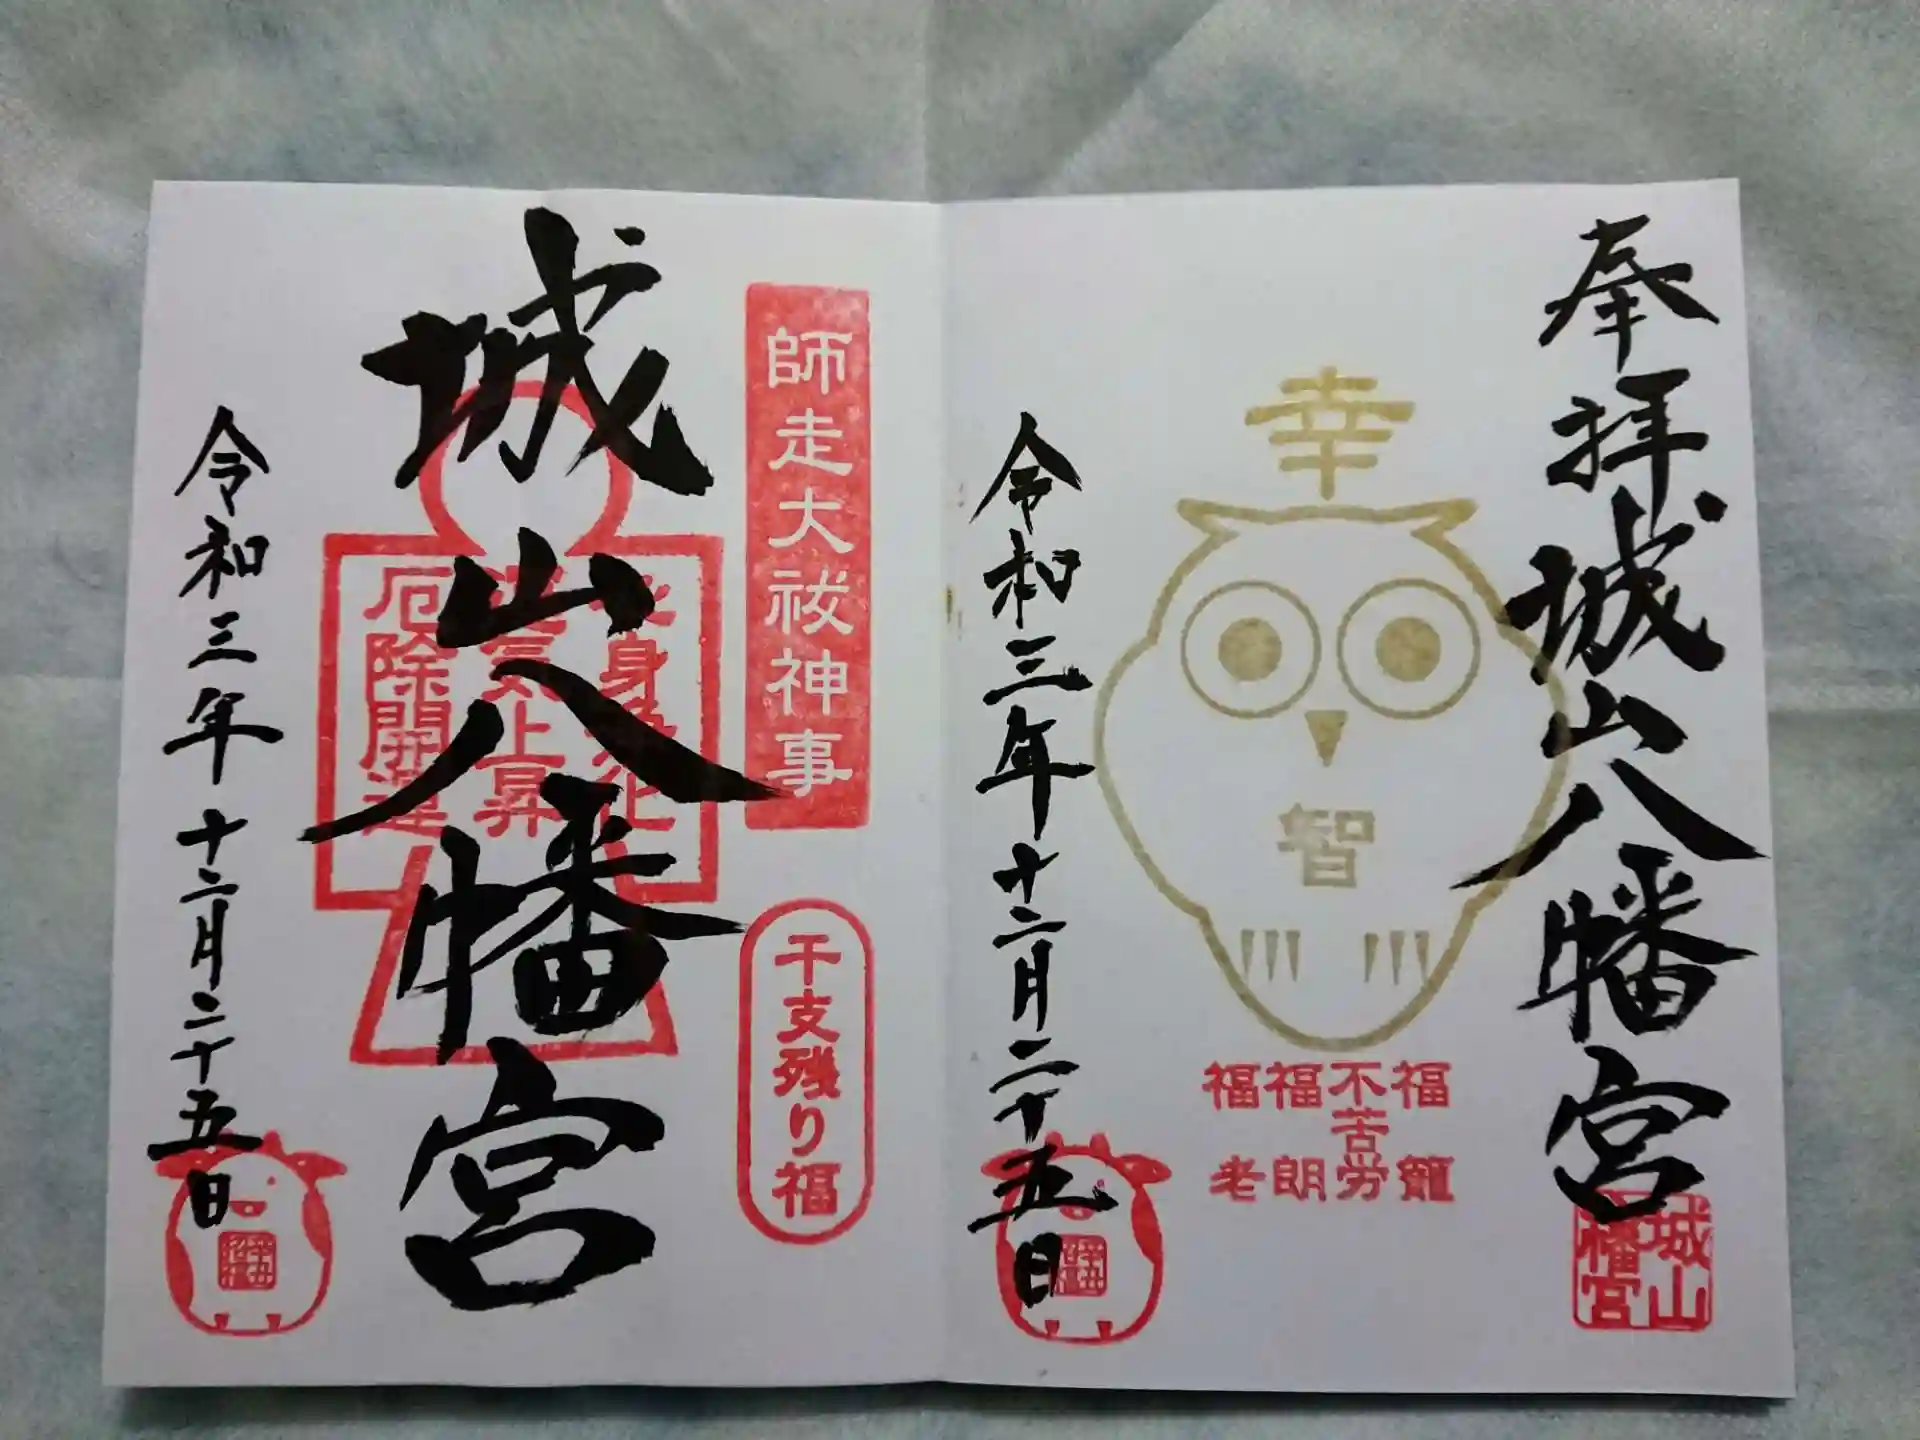 奉拝
城山八幡宮
幸
智
福福不福
苦
老朗労籠
城山
幡宮
令和三年十二月二十五日
師走大祓神事
干支残り福
城山八幡宮
厄除開運
令和三年十二月二十五日